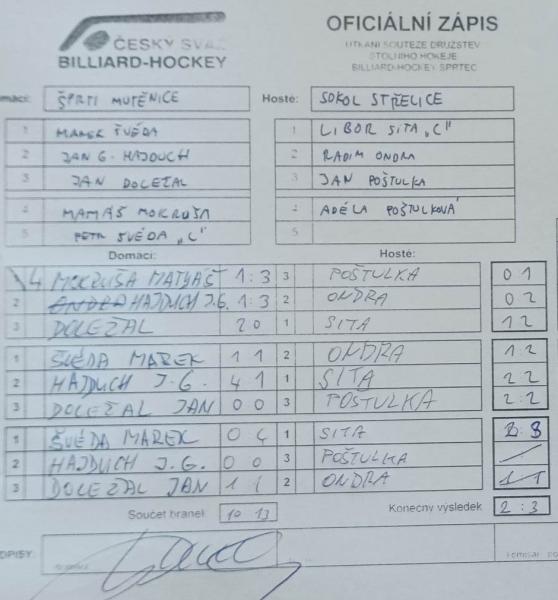 ČESKÝ SVAZ
BILLIARD-HOCKEY
OFICIÁLNÍ ZÁPIS
UTKÁNÍ SOUTĚŽE DRUŽSTEV
STOLNÍHO HOKEJE
BILLIARD-HOCKEY SPRTEC
maci: ŠPRTI MUTĚNICE Hosté: SOKOL STŘELICE
1 MAREK ŠVÉDA 1 LIBOR SITA „C"
2 JAN G. HAJDUCH 2 RADIM ONDRA
3 JAN DOLEŽAL 3 JAN POŠTULKA
4 MOKRUŠA 4 ADÉLA POŠTULKOVÁ
5 PETR ŠVÉDA „C" 5
Domácí: Hosté:
4 MOKRUŠA MATYÁŠ 1:3 3 POŠTULKA 0 1
2 HAJDUCH J.G. 1:3 2 ONDRA 0 2
3 DOLEŽAL 2 0 1 SITA 1 2
ŠVÉDA MAREK 1 1 2 ONDRA 1:2
2 HAJDUCH J.G. 4 1 1 SITA 2 2
3 DOLEŽAL JAN 0 0 3 POŠTULKA 2:2
ŠVÉDA MAREK 0 4 1 SITA 3
2 HAJDUCH J.G. 0 0 3 POŠTULKA
3 DOLEŽAL JAN 1 1 2 ONDRA
Součet branek 10 13 Konečný výsledek 2:3
DPISY: